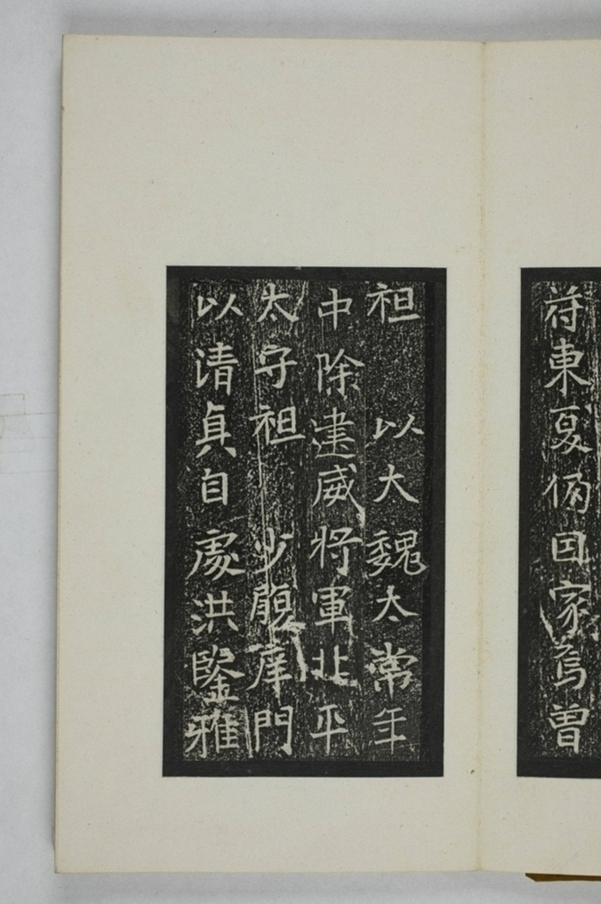 符東夏囙家焉曾
祖 以大魏太常年
中除建威將軍北平
太守祖 少履庠門
以清真自處洪鑒雅